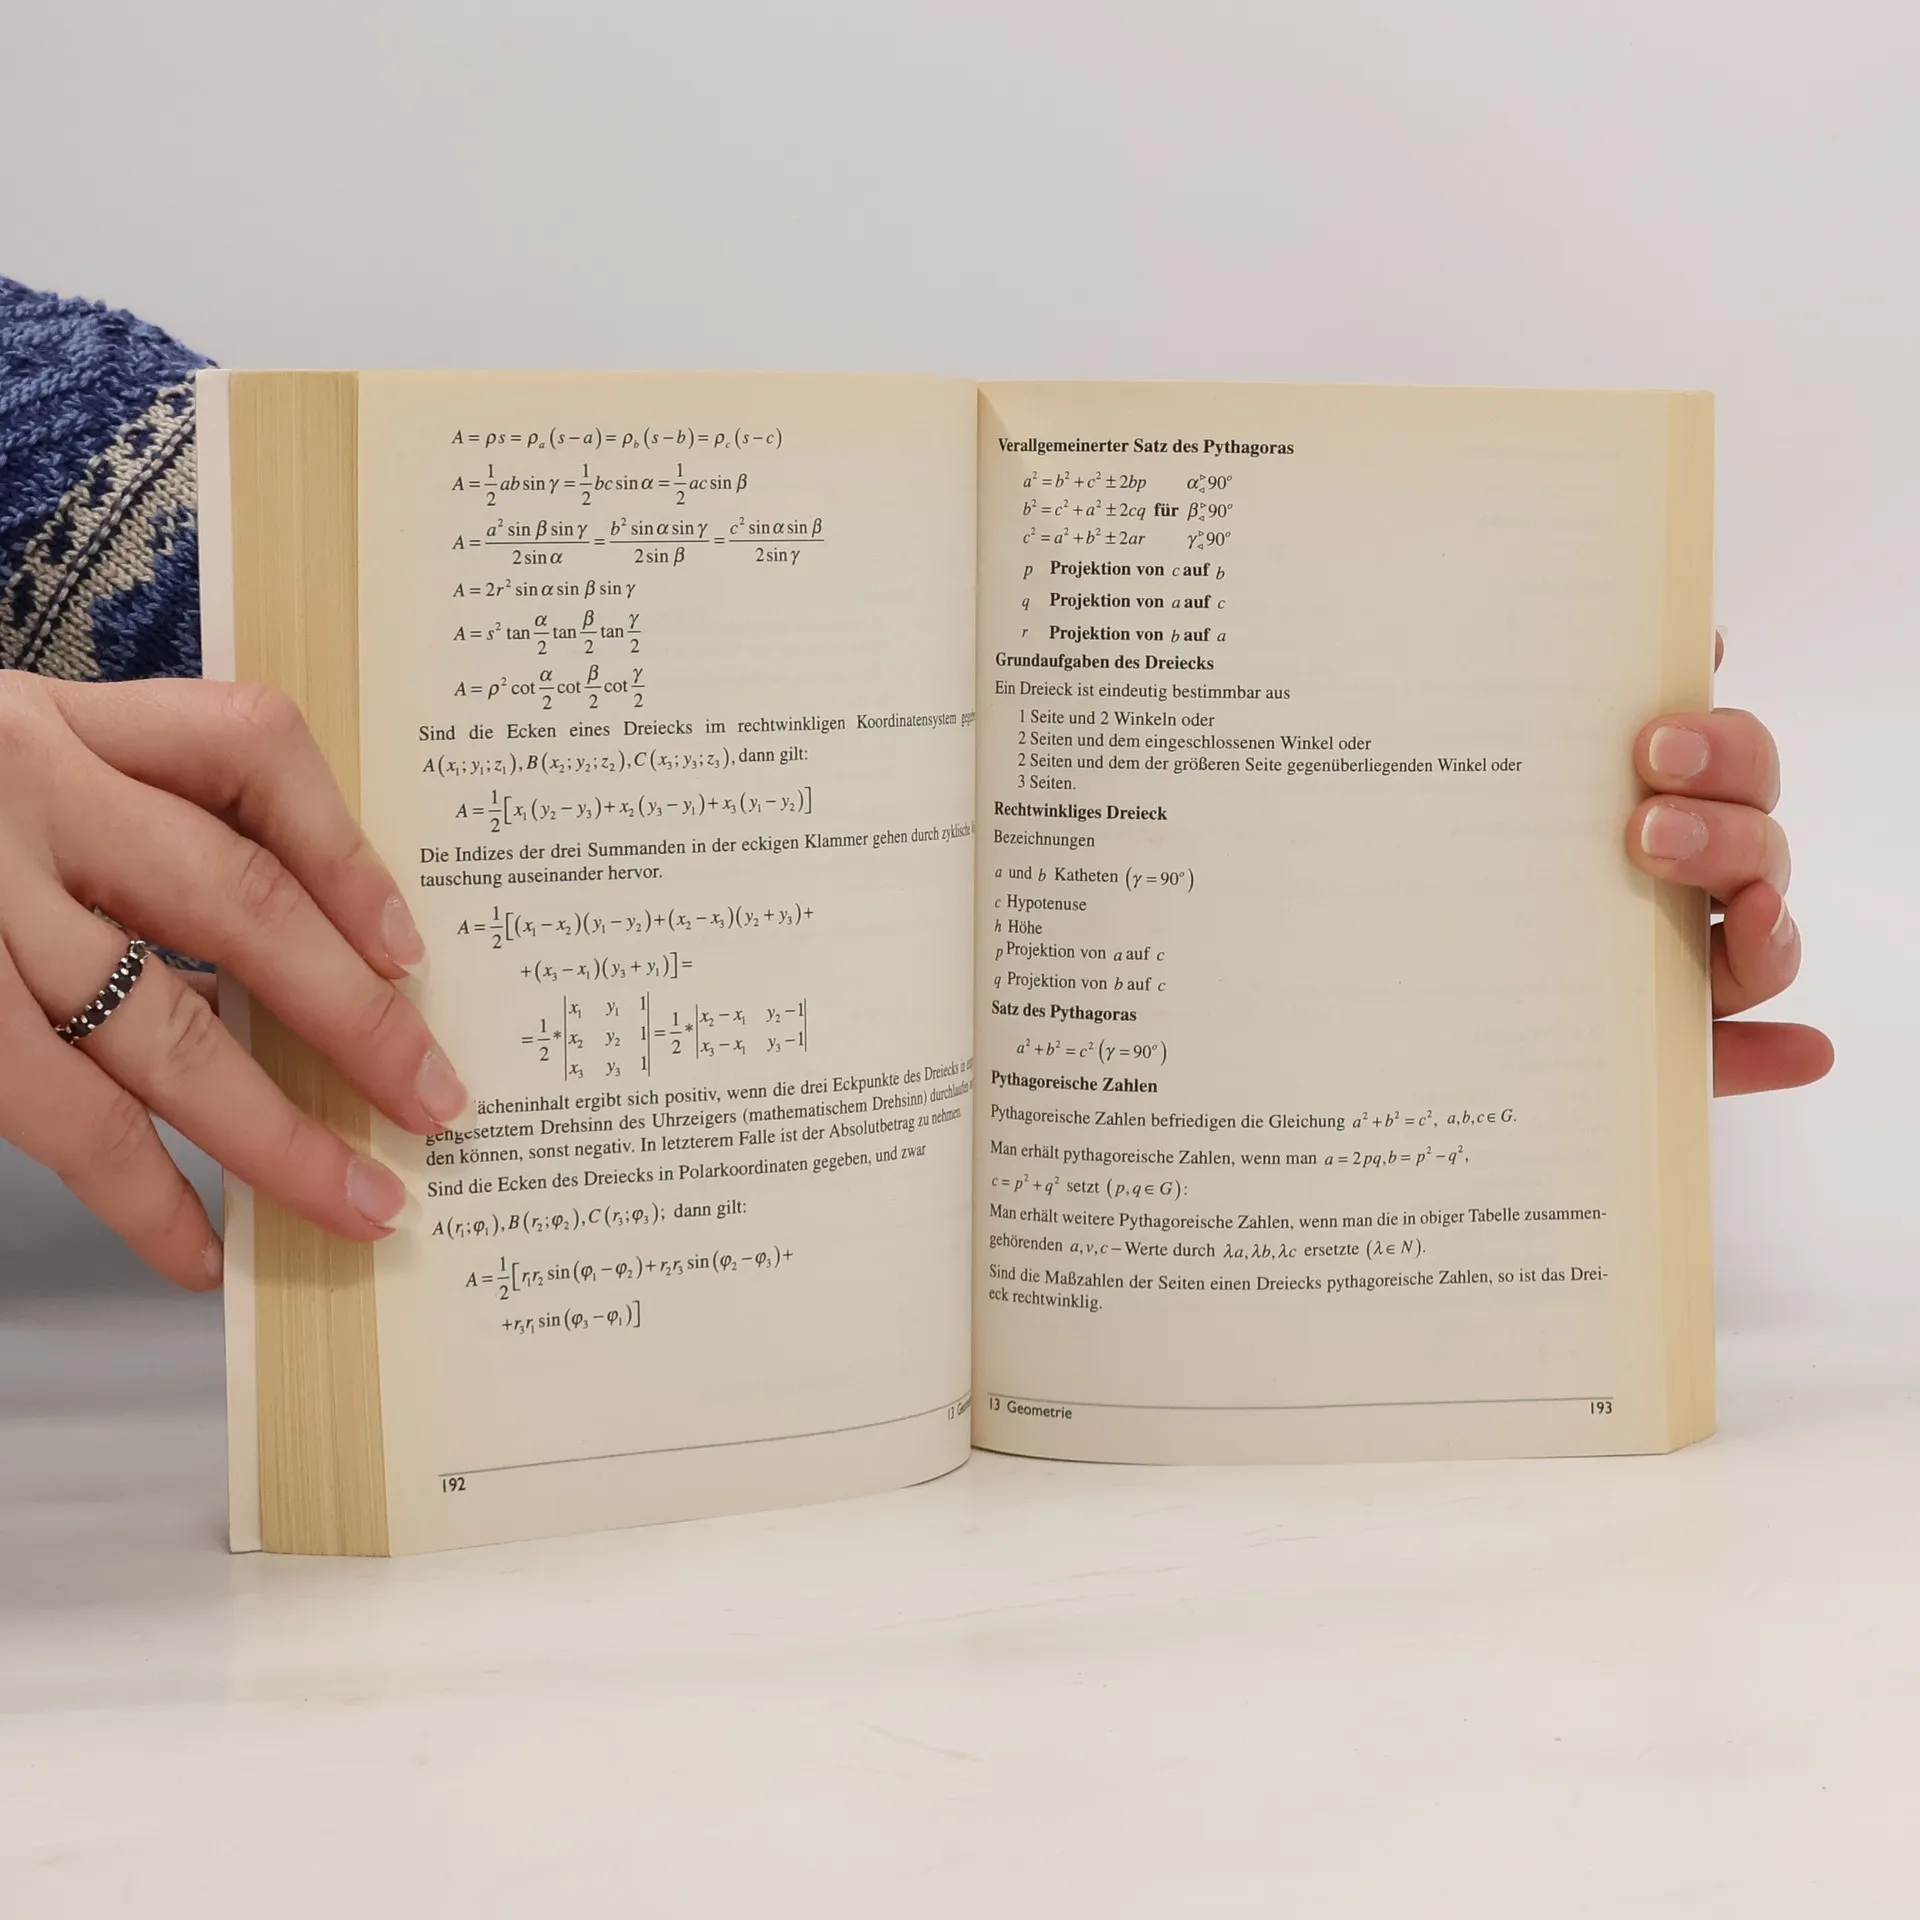 A = ρs = ρₐ(s−a) = ρ_b(s−b) = ρ_c(s−c)
A = 1/2 ab sin γ = 1/2 bc sin α = 1/2 ac sin β
A = a² sin β sin γ / 2 sin α = b² sin α sin γ / 2 sin β = c² sin α sin β / 2 sin γ
A = 2r² sin α sin β sin γ
A = s² tan α/2 tan β/2 tan γ/2
A = ρ² cot α/2 cot β/2 cot γ/2
Sind die Ecken eines Dreiecks im rechtwinkligen Koordinatensystem
A(x₁; y₁; z₁), B(x₂; y₂; z₂), C(x₃; y₃; z₃), dann gilt:
A = 1/2 [x₁(y₂ − y₃) + x₂(y₃ − y₁) + x₃(y₁ − y₂)]
Die Indizes der drei Summanden in der eckigen Klammer gehen durch zyklische
tauschung auseinander hervor.
A = 1/2 [(x₁ − x₂)(y₁ − y₂) + (x₂ − x₃)(y₂ + y₃) +
+ (x₃ − x₁)(y₃ + y₁)] =
= 1/2 * |x₁ y₁ 1| = 1/2 * |x₂ − x₁ y₂ − 1|
|x₂ y₂ 1| |x₃ − x₁ y₃ − 1|
|x₃ y₃ 1|
ächeninhalt ergibt sich positiv, wenn die drei Eckpunkte des Dreiecks in
gengesetztem Drehsinn des Uhrzeigers (mathematischem Drehsinn) durchlaufen
den können, sonst negativ. In letzterem Falle ist der Absolutbetrag zu nehmen.
Sind die Ecken des Dreiecks in Polarkoordinaten gegeben, und zwar
A(r₁; φ₁), B(r₂; φ₂), C(r₃; φ₃); dann gilt:
A = 1/2 [r₁r₂ sin(φ₁ − φ₂) + r₂r₃ sin(φ₂ − φ₃) +
+ r₃r₁ sin(φ₃ − φ₁)]
192
13
Verallgemeinerter Satz des Pythagoras
a² = b² + c² ± 2bp α ⋛ 90°
b² = c² + a² ± 2cq für β ⋛ 90°
c² = a² + b² ± 2ar γ ⋛ 90°
p Projektion von c auf b
q Projektion von a auf c
r Projektion von b auf a
Grundaufgaben des Dreiecks
Ein Dreieck ist eindeutig bestimmbar aus
1 Seite und 2 Winkeln oder
2 Seiten und dem eingeschlossenen Winkel oder
2 Seiten und dem der größeren Seite gegenüberliegenden Winkel oder
3 Seiten.
Rechtwinkliges Dreieck
Bezeichnungen
a und b Katheten (γ = 90°)
c Hypotenuse
h Höhe
p Projektion von a auf c
q Projektion von b auf c
Satz des Pythagoras
a² + b² = c² (γ = 90°)
Pythagoreische Zahlen
Pythagoreische Zahlen befriedigen die Gleichung a² + b² = c², a, b, c ∈ G.
Man erhält pythagoreische Zahlen, wenn man a = 2pq, b = p² − q²,
c = p² + q² setzt (p, q ∈ G):
Man erhält weitere Pythagoreische Zahlen, wenn man die in obiger Tabelle zusammen-
gehörenden a, v, c – Werte durch λa, λb, λc ersetzte (λ ∈ N).
Sind die Maßzahlen der Seiten einen Dreiecks pythagoreische Zahlen, so ist das Drei-
eck rechtwinklig.
13 Geometrie
193